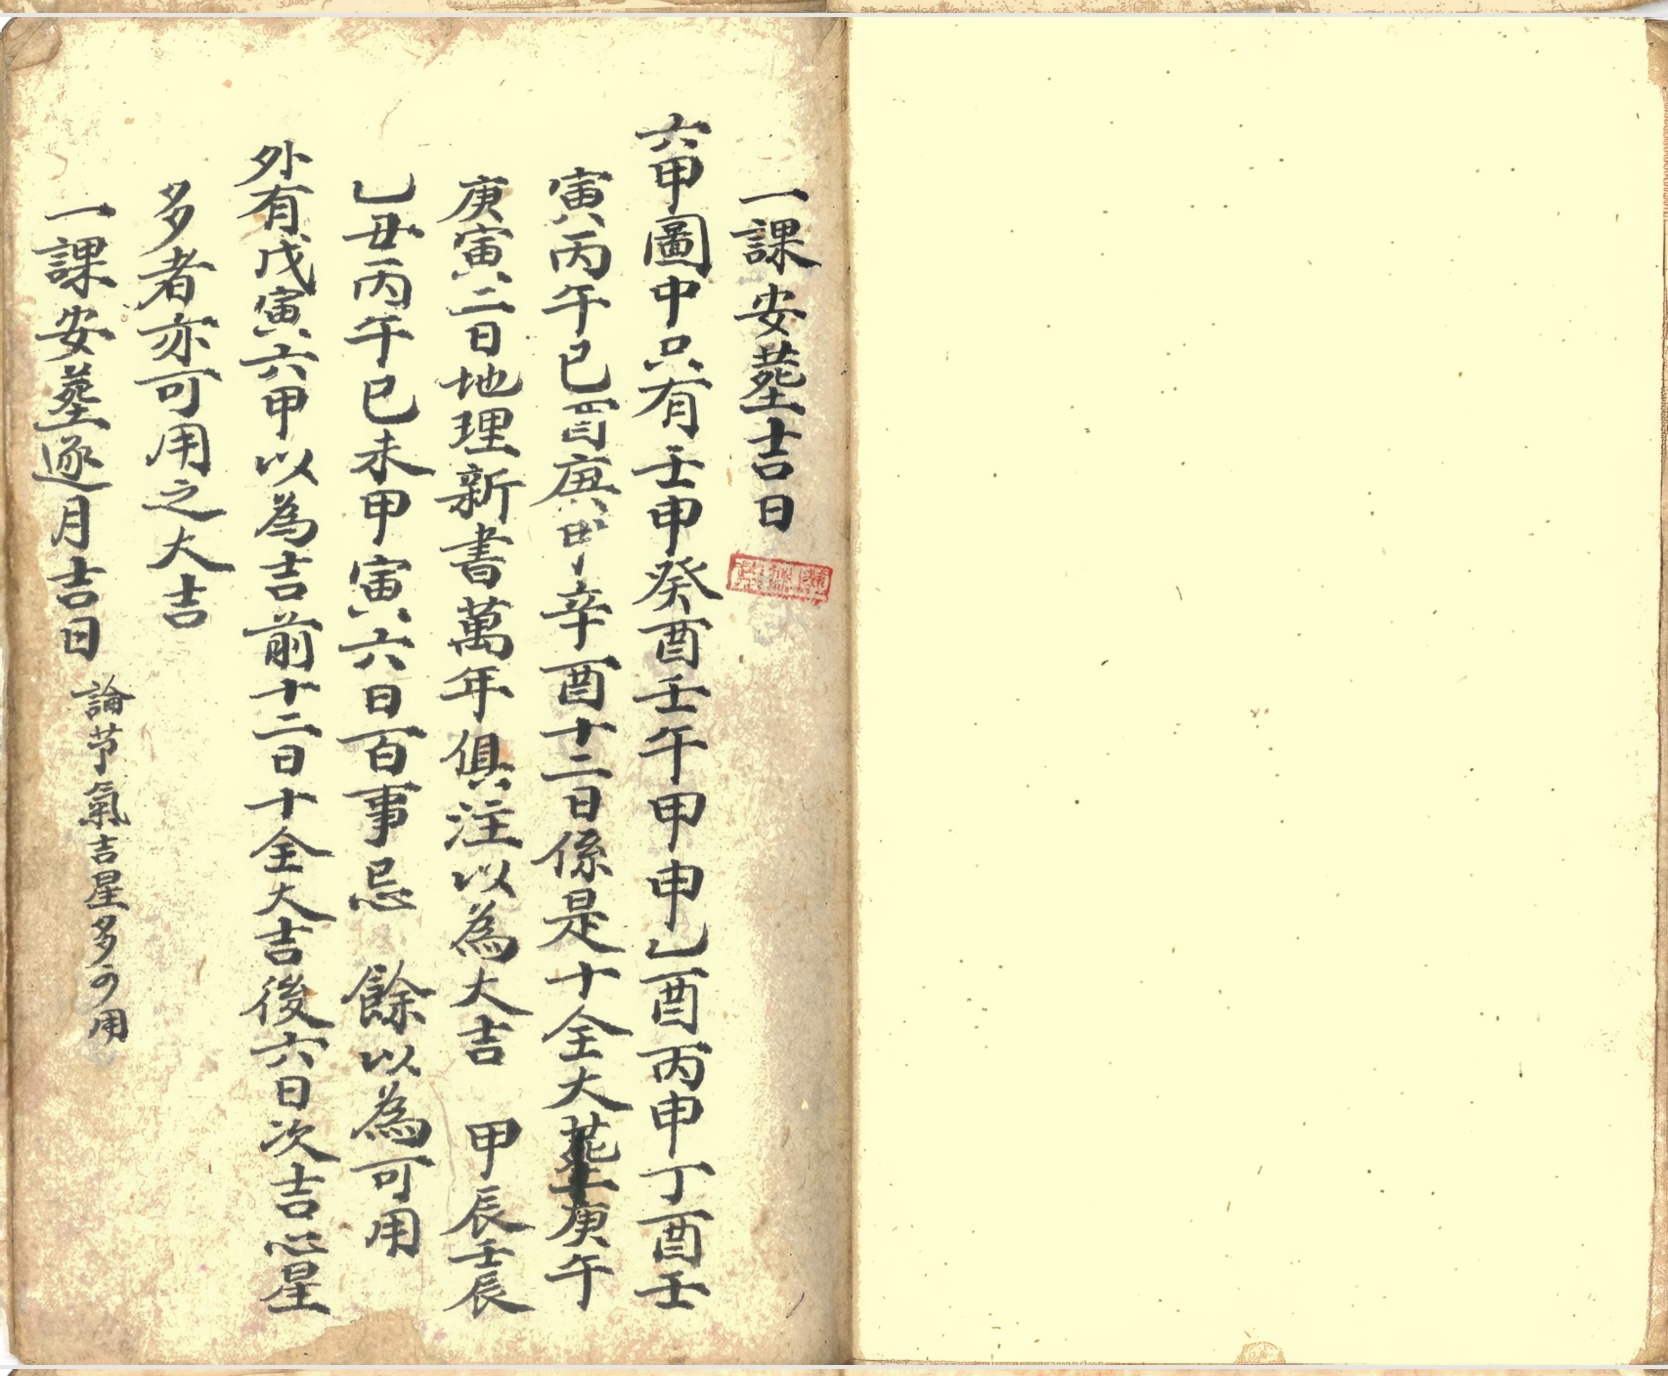 一課安葬吉日
六甲圖中只有壬申癸酉壬午甲申乙酉丙申丁酉壬
寅丙午己酉庚申辛酉十二日係是十全大葬庚午
庚寅二日地理新書萬年俱注以為大吉 甲辰壬辰
乙丑丙午巳未甲寅六日百事忌 餘以為可用
外有戊寅六甲以為吉前十二日十全大吉後六日次吉吉星
多者亦可用之大吉
一課安葬逐月吉日 論节氣吉星多可用